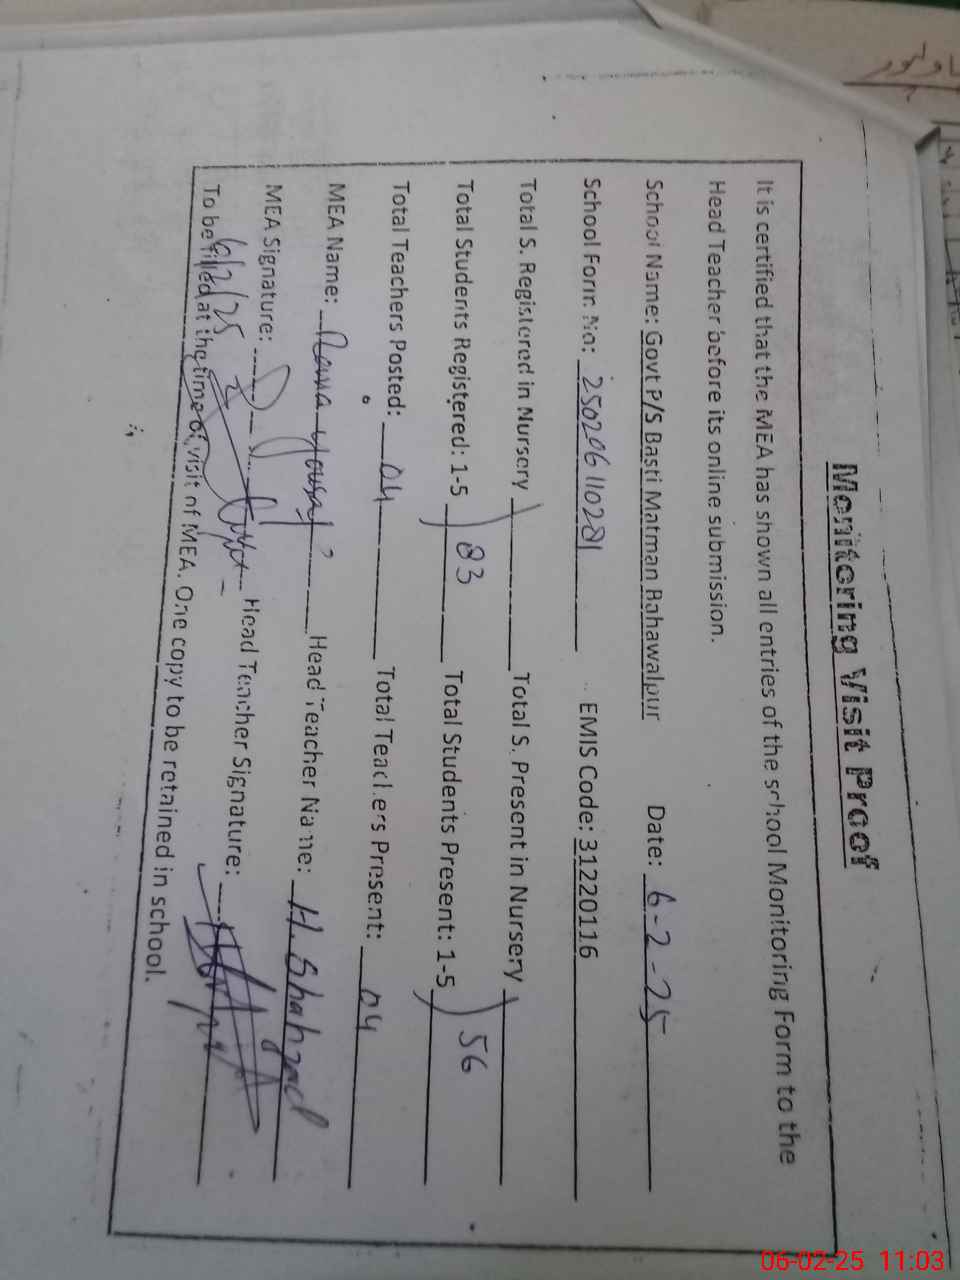 Monitoring Visit Proof
It is certified that the MEA has shown all entries of the school Monitoring Form to the
Head Teacher before its online submission.
School Name: Govt P/S Basti Matman Bahawalpur Date: 6-2-25
School Form No: 250206110281 EMIS Code: 31220116
Total S. Registered in Nursery Total S. Present in Nursery
Total Students Registered: 1-5 83 Total Students Present: 1-5 56
Total Teachers Posted: 04 Total Teachers Present: 04
MEA Name: Head Teacher Name: H. Shahzad
MEA Signature: Head Teacher Signature:
6/2/25
To be filled at the time of visit of MEA. One copy to be retained in school.
06-02-25 11:03